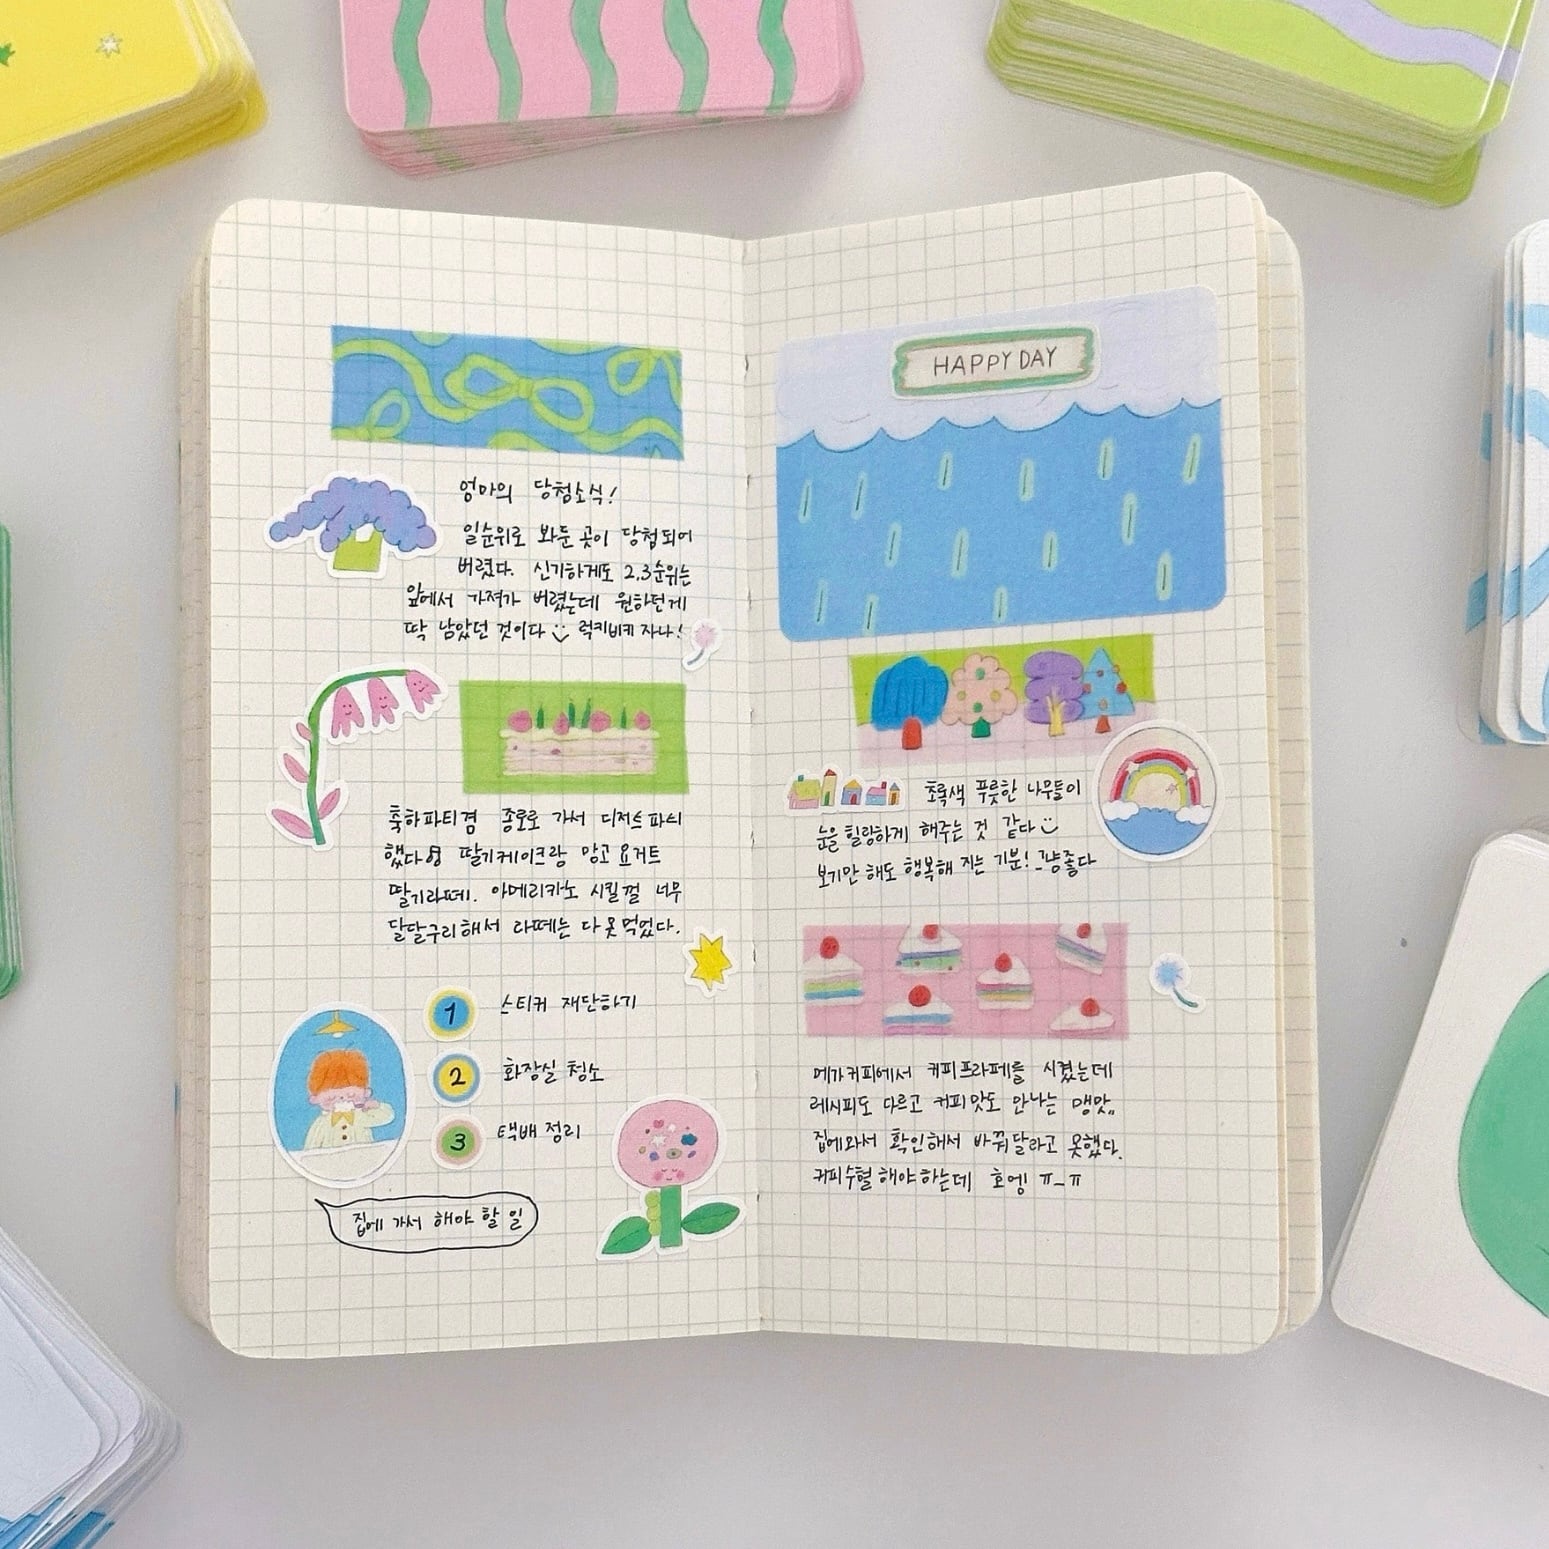 엄마의 당첨소식!
일순위로 봐둔 곳이 당첩되어
버렸다. 신기하게도 2,3순위는
앞에서 가져가 버렸는데 원하던게
딱 남았던 것이다 럭키비키 자나!
축하파티겸 종로로 가서 디저트파티
했다 딸기케이크랑 망고요거트
딸기라떼. 아메리카노 시킬껄 너무
달달구리해서 라떼는 다 못 먹었다.
1 스티커 재단하기
2 화장실 청소
3 택배 정리
집에 가서 해야 할 일
HAPPY DAY
초록색 푸릇한 나무들이
눈을 힐링하게 해주는 것 같다
보기만 해도 행복해 지는 기분! 그냥좋다
메가커피에서 커피프라페를 시켰는데
레시피도 다르고 커피맛도 안나는 맹맛..
집에와서 확인해서 바꿔달라고 못했다.
커피수혈 해야하는데 호엥 ㅠ_ㅠ